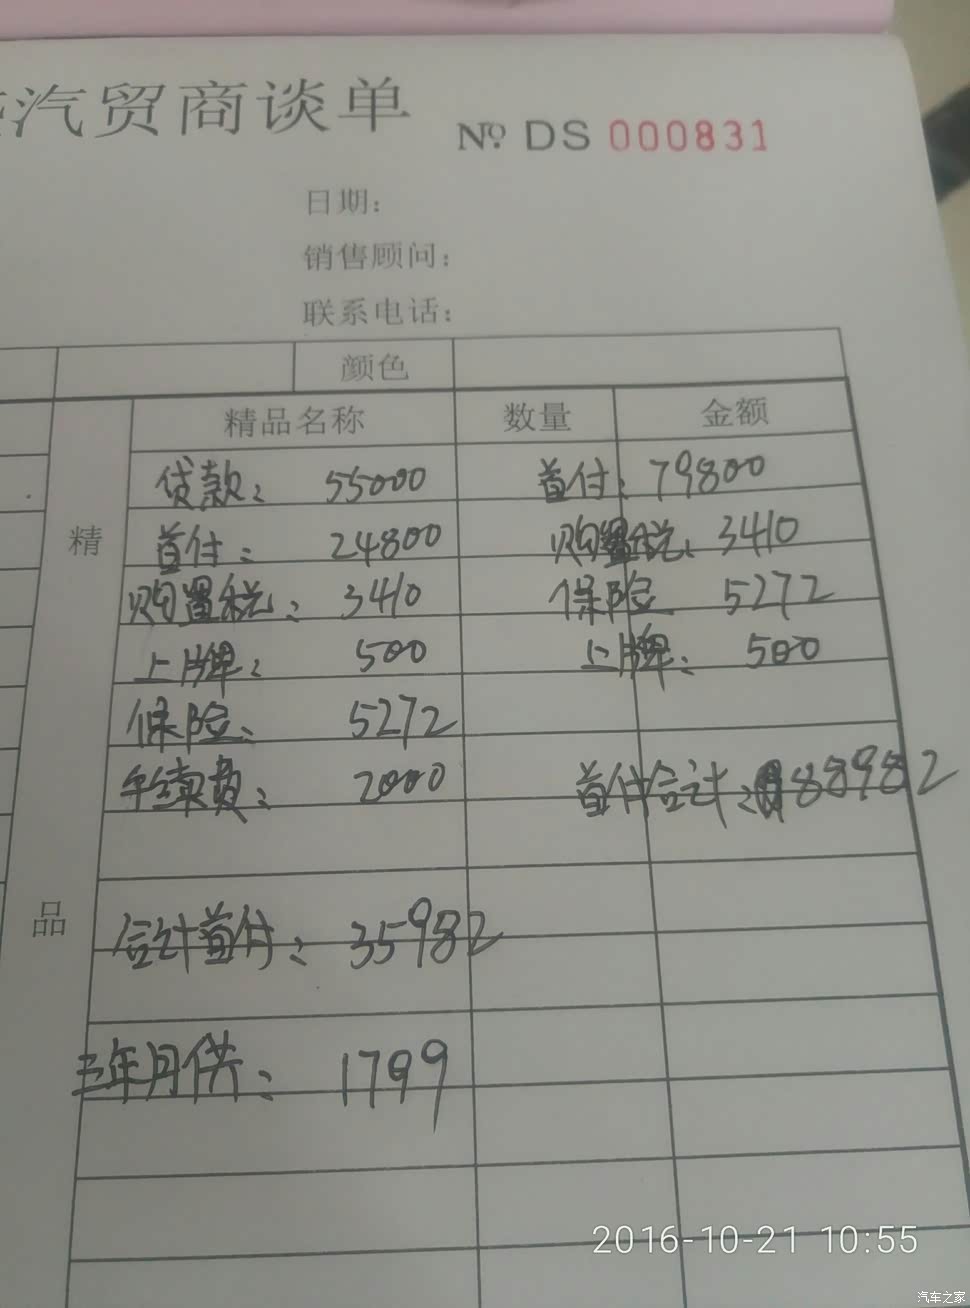 汽贸商谈单
№ DS 000831
日期：
销售顾问：
联系电话：
颜色
精品名称 数量 金额
贷款： 55000 首付： 79800
精
首付： 24800 购置税： 3410
购置税： 3410 保险 5272
上牌： 500 上牌： 500
保险： 5272
手续费： 2000 首付合计： 88982
品
合计首付： 35982
三年月供： 1799
2016-10-21 10:55
汽车之家